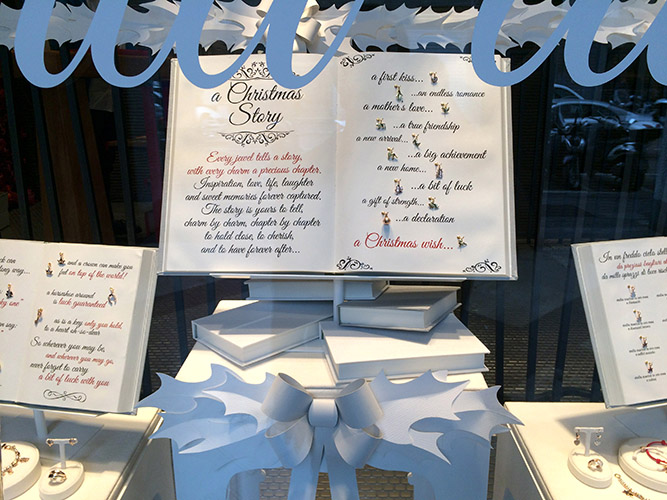 a Christmas
Story
Every jewel tells a story,
with every charm a precious chapter.
Inspiration, love, life, laughter
and sweet memories forever captured.
The story is yours to tell,
charm by charm, chapter by chapter
to hold close, to cherish,
and to have forever after...
a first kiss...
...an endless romance
a mother's love...
...a true friendship
a new arrival...
...a big achievement
a new home...
...a bit of luck
a gift of strength...
...a declaration
a Christmas wish...
can
long way...
ky one
say:
and a crown can make you
feel on top of the world!
a horseshoe around
is luck guaranteed
as is a key only you hold,
to a heart oh-so-dear
So wherever you may be,
and wherever you may go,
never forget to carry
a bit of luck with you
In un freddo cielo